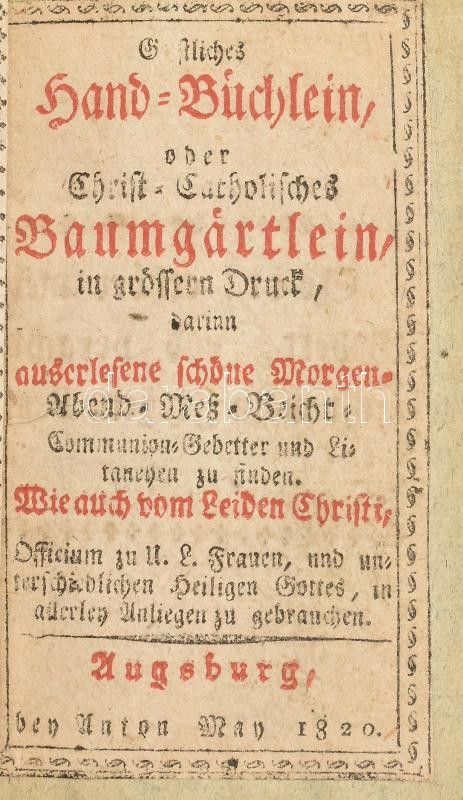 Geistliches
Hand-Büchlein,
oder
Christ-Catholisches
Baumgärtlein,
in grössern Druck,
darinn
auserlesene schöne Morgen-
Abend-Meß-Beicht-
Communion-Gebetter und Li-
taneyen zu finden.
Wie auch vom Leiden Christi,
Officium zu U. L. Frauen, und un-
terschiedlichen Heiligen Gottes, in
allerley Anliegen zu gebrauchen.
Augsburg,
bey Anton May 1820.